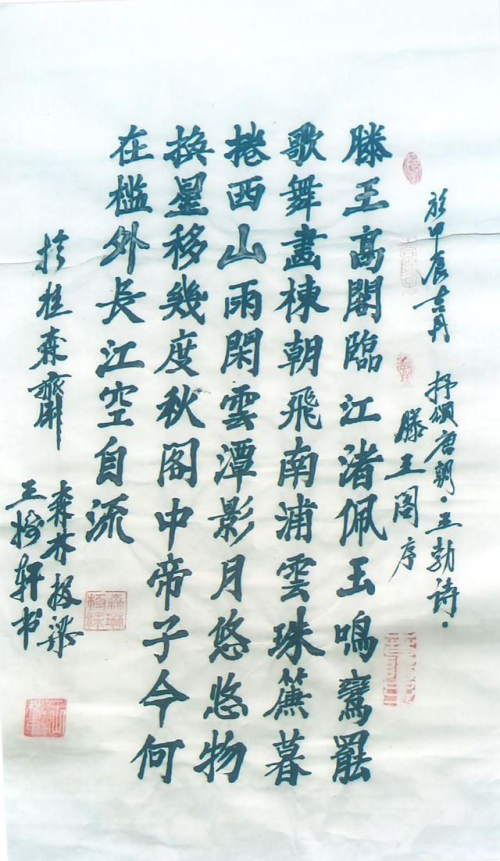 於甲辰吉月 抒頌唐朝·王勃詩·
滕王阁序
滕王高閣臨江渚佩玉鳴鸞罷
歌舞畫棟朝飛南浦雲珠簾暮
捲西山雨閑雲潭影月悠悠物
換星移幾度秋阁中帝子今何
在槛外長江空自流
於桂森齋
森林
王樹轩书